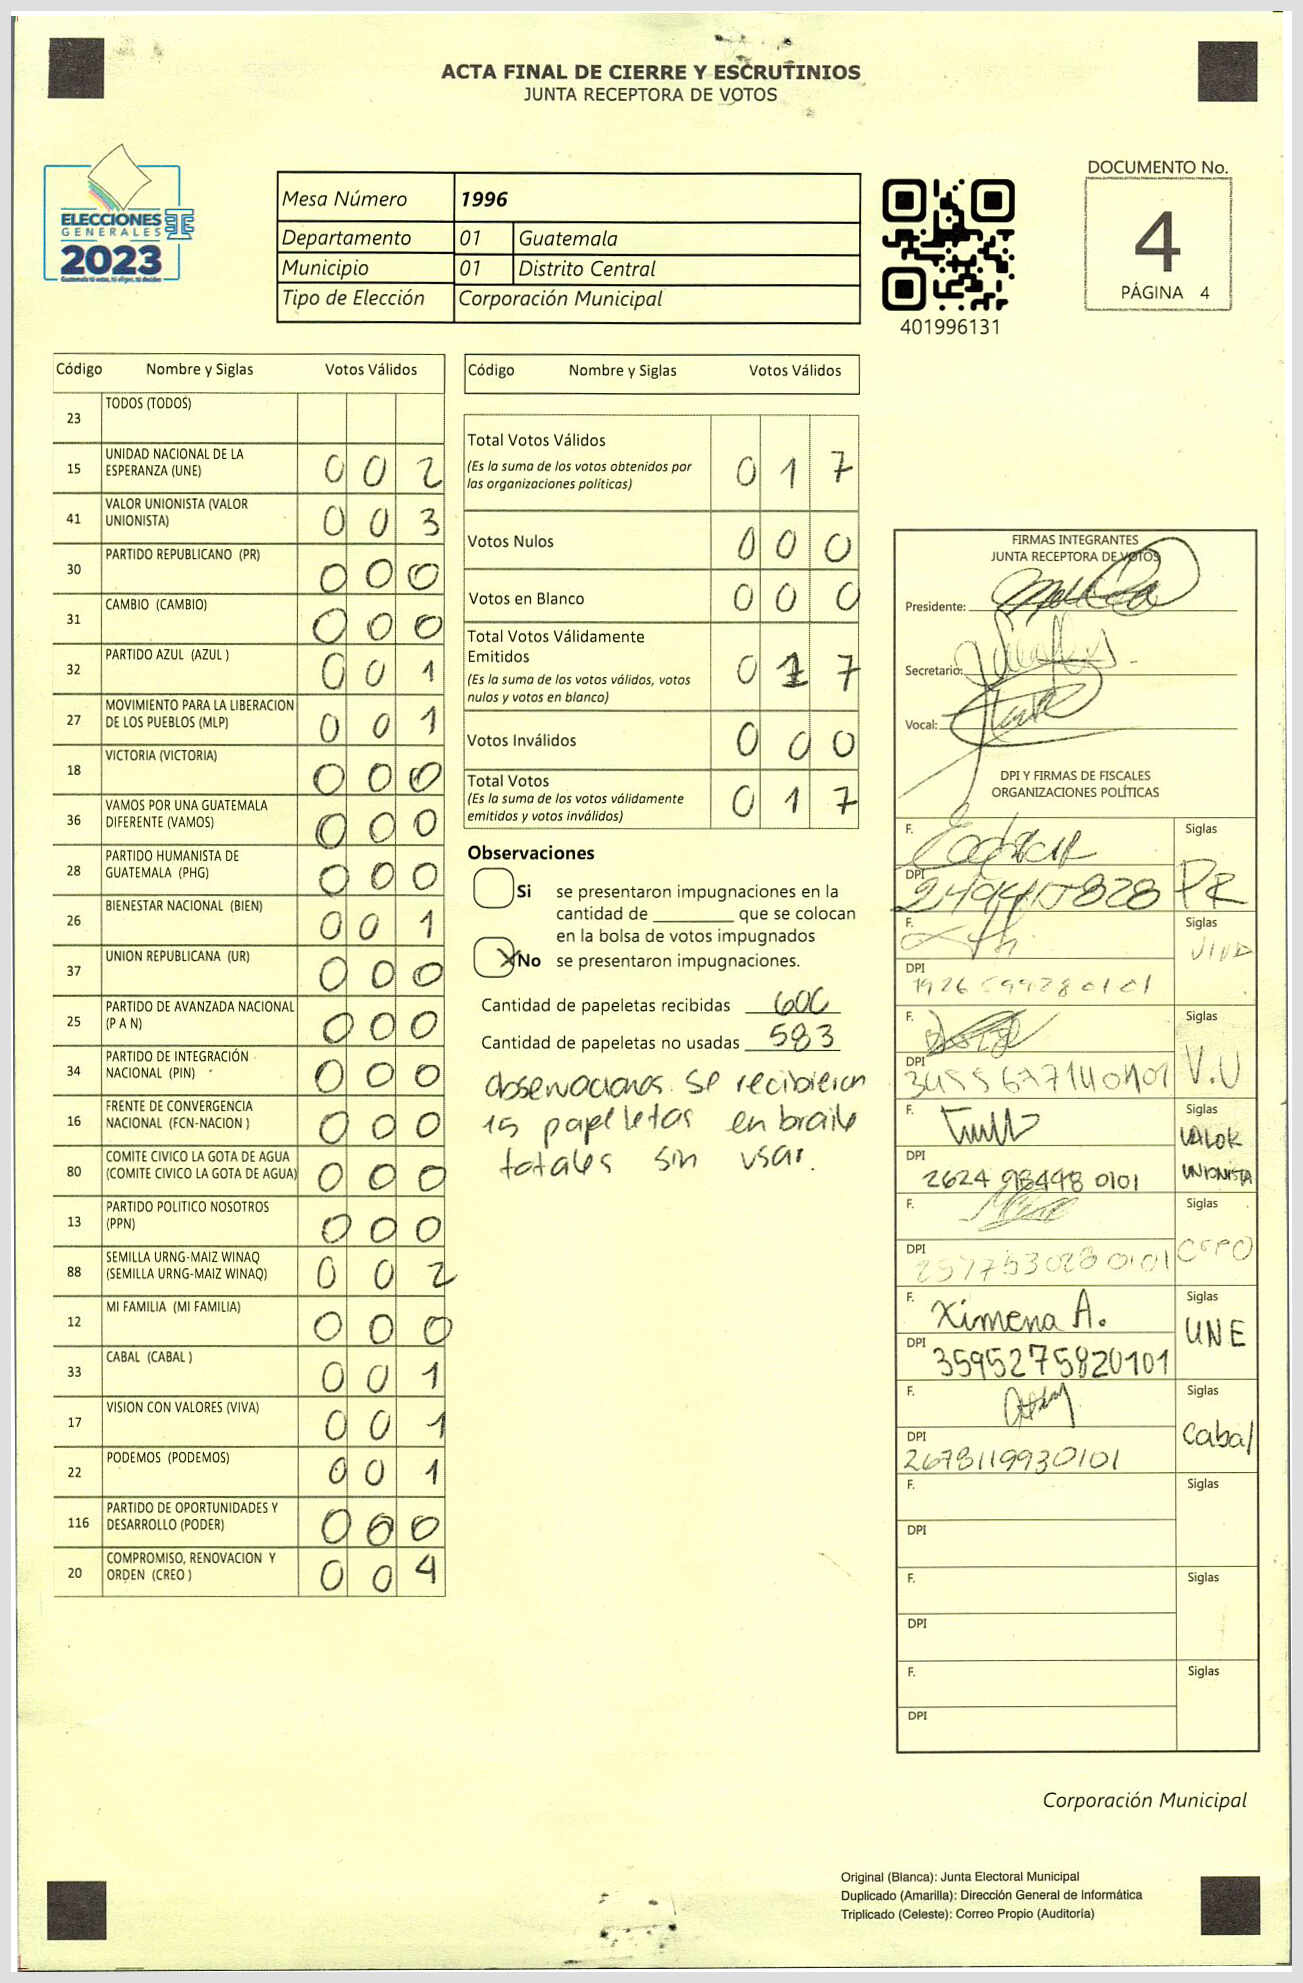 ACTA FINAL DE CIERRE Y ESCRUTINIOS
JUNTA RECEPTORA DE VOTOS
ELECCIONES
GENERALES
2023
Mesa Número 1996
Departamento 01 Guatemala
Municipio 01 Distrito Central
Tipo de Elección Corporación Municipal
401996131
DOCUMENTO No.
4
PÁGINA 4
Código Nombre y Siglas Votos Válidos
23 TODOS (TODOS)
15 UNIDAD NACIONAL DE LA
ESPERANZA (UNE) 0 0 2
41 VALOR UNIONISTA (VALOR
UNIONISTA) 0 0 3
30 PARTIDO REPUBLICANO (PR) 0 0 0
31 CAMBIO (CAMBIO) 0 0 0
32 PARTIDO AZUL (AZUL ) 0 0 1
27 MOVIMIENTO PARA LA LIBERACION
DE LOS PUEBLOS (MLP) 0 0 1
18 VICTORIA (VICTORIA) 0 0 0
36 VAMOS POR UNA GUATEMALA
DIFERENTE (VAMOS) 0 0 0
28 PARTIDO HUMANISTA DE
GUATEMALA (PHG) 0 0 0
26 BIENESTAR NACIONAL (BIEN) 0 0 1
37 UNION REPUBLICANA (UR) 0 0 0
25 PARTIDO DE AVANZADA NACIONAL
(P A N) 0 0 0
34 PARTIDO DE INTEGRACIÓN
NACIONAL (PIN) 0 0 0
16 FRENTE DE CONVERGENCIA
NACIONAL (FCN-NACION ) 0 0 0
80 COMITE CIVICO LA GOTA DE AGUA
(COMITE CIVICO LA GOTA DE AGUA) 0 0 0
13 PARTIDO POLITICO NOSOTROS
(PPN) 0 0 0
88 SEMILLA URNG-MAIZ WINAQ
(SEMILLA URNG-MAIZ WINAQ) 0 0 2
12 MI FAMILIA (MI FAMILIA) 0 0 0
33 CABAL (CABAL ) 0 0 1
17 VISION CON VALORES (VIVA) 0 0 1
22 PODEMOS (PODEMOS) 0 0 1
116 PARTIDO DE OPORTUNIDADES Y
DESARROLLO (PODER) 0 0 0
20 COMPROMISO, RENOVACION Y
ORDEN (CREO ) 0 0 4
Código Nombre y Siglas Votos Válidos
Total Votos Válidos
(Es la suma de los votos obtenidos por
las organizaciones políticas) 0 1 7
Votos Nulos 0 0 0
Votos en Blanco 0 0 0
Total Votos Válidamente
Emitidos 0 1 7
(Es la suma de los votos válidos, votos
nulos y votos en blanco)
Votos Inválidos 0 0 0
Total Votos
(Es la suma de los votos válidamente
emitidos y votos inválidos) 0 1 7
Observaciones
Si se presentaron impugnaciones en la
cantidad de ________ que se colocan
en la bolsa de votos impugnados
X No se presentaron impugnaciones.
Cantidad de papeletas recibidas 600
Cantidad de papeletas no usadas 583
observaciones. Se recibieron
15 papelletas en braile
totales sin usar.
FIRMAS INTEGRANTES
JUNTA RECEPTORA DE VOTOS
Presidente:
Secretario:
Vocal:
DPI Y FIRMAS DE FISCALES
ORGANIZACIONES POLÍTICAS
F. Siglas
DPI PR
F. Siglas
DPI VIVA
F. Siglas
DPI V.U
F. Siglas
VALOR
UNIONISTA
DPI 2624 98498 0101
F. Siglas
DPI
F. Ximena A. Siglas
UNE
DPI 3595275820101
F. Siglas
Cabal
DPI
2678119930101
F. Siglas
DPI
F. Siglas
DPI
F. Siglas
DPI
Corporación Municipal
Original (Blanca): Junta Electoral Municipal
Duplicado (Amarilla): Dirección General de Informática
Triplicado (Celeste): Correo Propio (Auditoría)